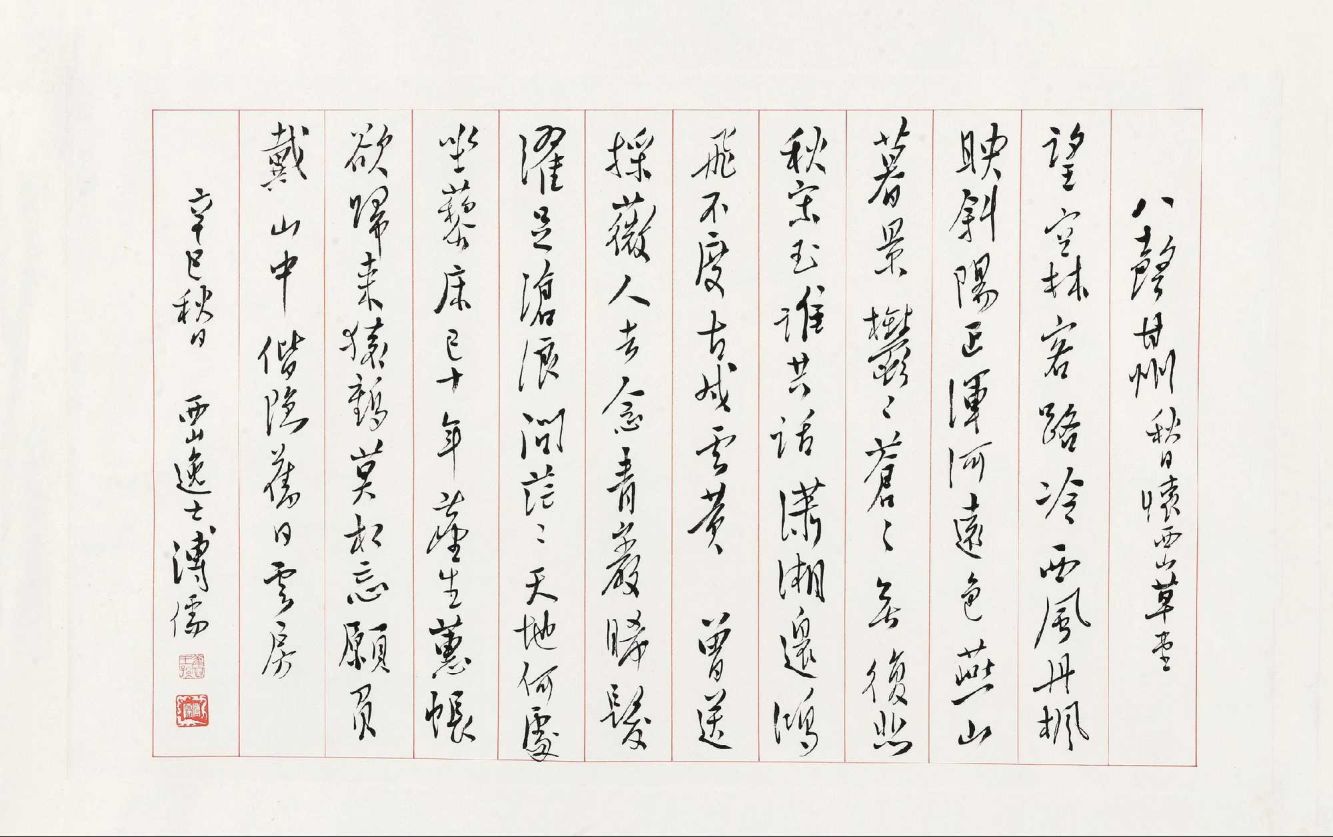 八聲甘州 秋日懷西山草堂
望空林客路冷西風丹楓
映斜陽正渾河遠色燕山
暮景鬱〻蒼〻無復悲
秋宋玉誰共話瀟湘邊鴻
飛不度古戍雲黃 曾送
採薇人去念青巖晞髮
濯足滄浪問茫〻天地何處
坐藜床已十年薶生蕙帳
欲歸來猿鶴莫相忘願負
戴山中偕隱舊日雲房
辛巳秋日 西山逸士溥儒